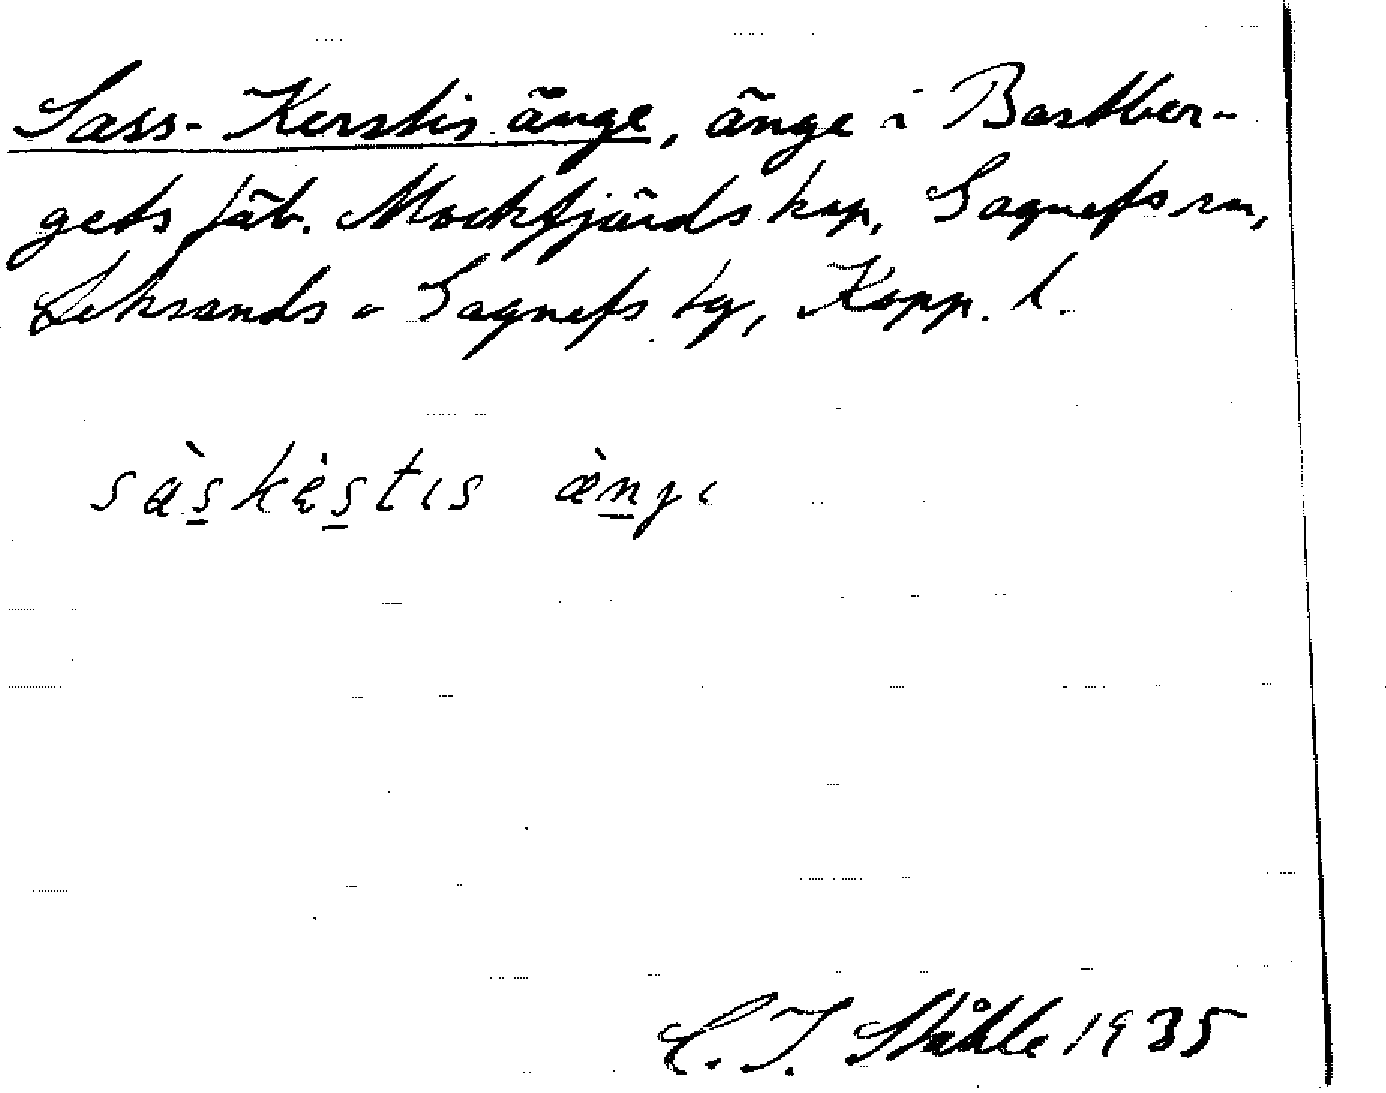 Sass-Kerstis änge, änge i Bastber-
gets fäb. Mockfjärds kap. Gagnefs sn,
Leksands o Gagnefs tg, Kopp. l.
sàs̱kès̱tıs æ̀ṉjı
C. I. Ståhle 1935